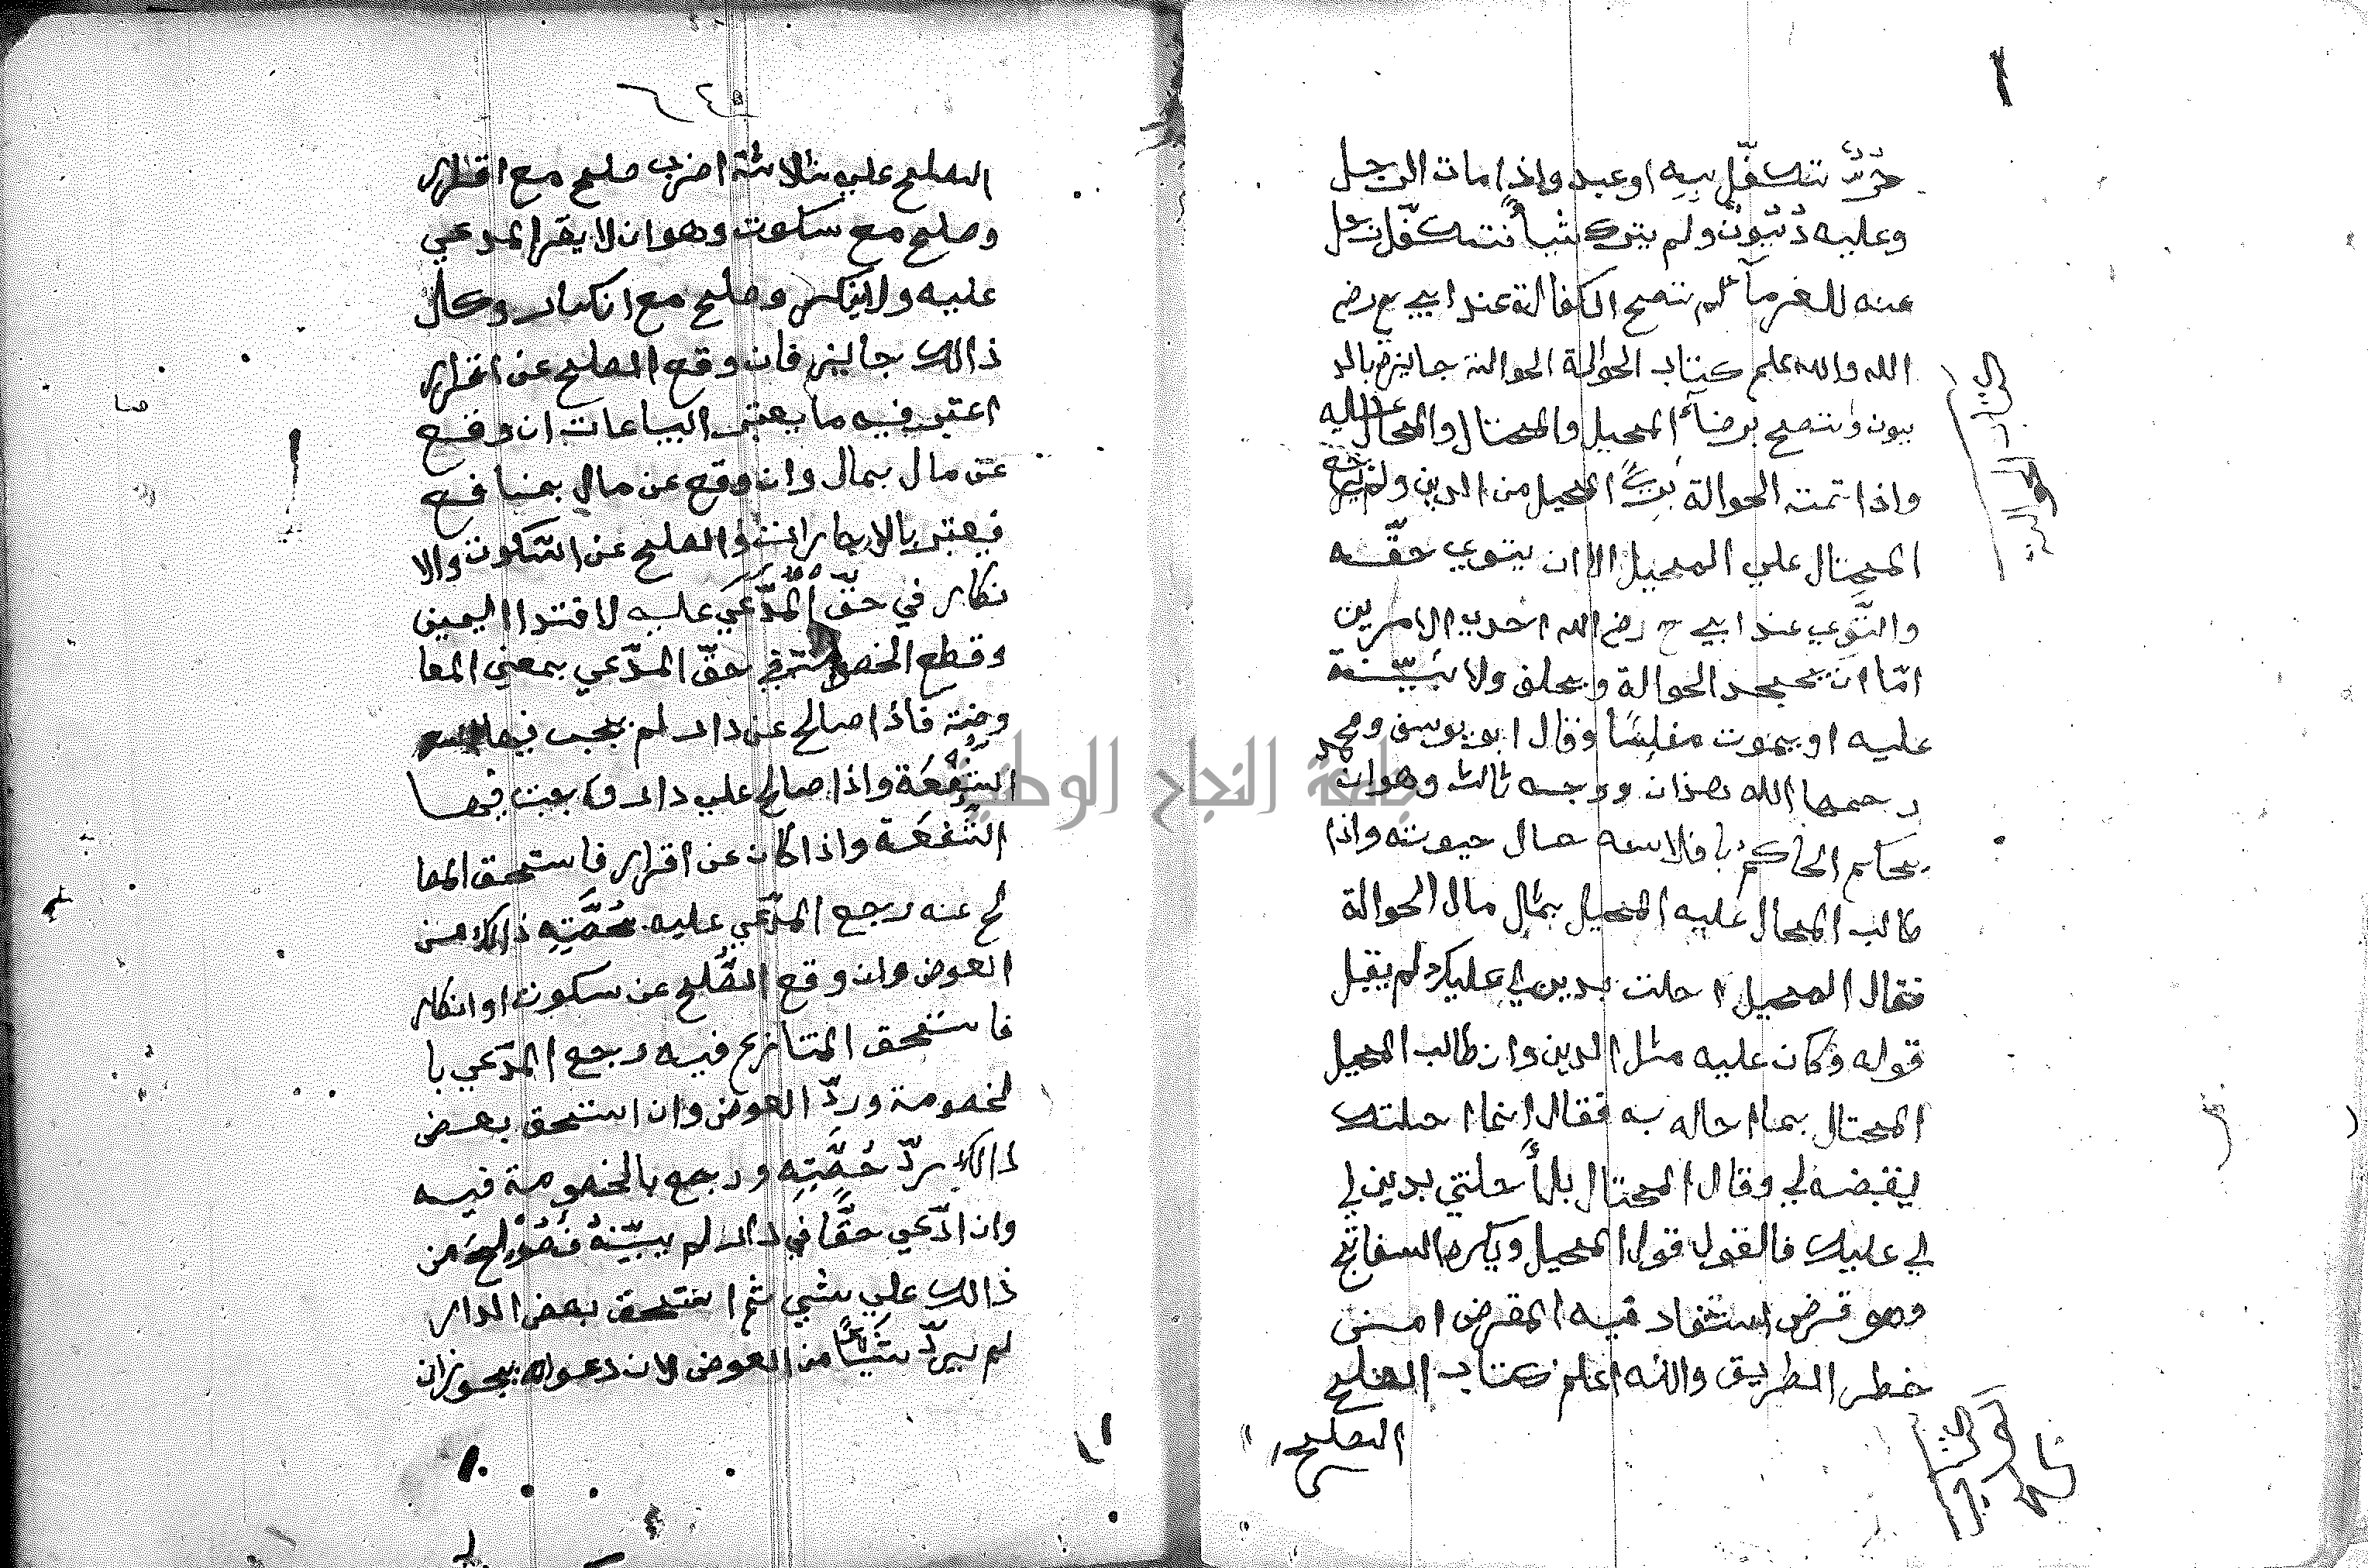 حرّ تكفّل به او عبد واذا مات الرجل
وعليه ديون ولم يترك شيأ فتكفّل رجل
عنه للغرمآء لم تصح الكفالة عند ابي ح رضي
الله والله علم كتاب الحوالة الحوالة جايزة بالد
يون وتصح برضآء المحيل والمحتال والمحال عليه
واذا تمت الحوالة برئ المحيل من الدين ولم يرجع
المحتال علي المحيل الا ان يتوي حقّه
والتّوي عند ابي ح رضي الله احدي الامرين
امّا ان يجحد الحوالة ويحلف ولا بيّنة
عليه او يموت مفلسًا وقال ابو يوسف ومحمد
رحمهما الله هذان ووجه ثالث وهو ان
يحكم الحاكم بافلاسه حال حيوته واذا
طالب المحال عليه المحيل بمثال مال الحوالة
فقال المحيل احلت بدين لي عليك لم يقبل
قوله وكان عليه مثل الدين وان طالب المحيل
المحتال بما احاله به فقال انما احلتك
ليقبضه لي وقال المحتال بل أحلتني بدين لي
لي عليك فالقول قول المحيل ويكره السفاتج
وهو قرض استفاد فيه المقرض امن
خطر الطريق والله اعلم كتاب الصلح
الصلح
كتاب الحوالة
٦٤٥
الصلح علي ثلاثة اضرب صلح مع اقرار
وصلح مع سكوت وهو ان لا يقر المدعي
عليه ولا ينكر وصلح مع انكار وكل
ذالك جايز فان وقع الصلح عن اقرار
اعتبر فيه ما يعتبر البياعات ان وقع
عن مال بمال وان وقع عن مال بمنافع
فيعتبر بالاجارات والصلح عن السّكوت والا
نكار في حقّ المدّعي عليه لافتدا اليمين
وقطع الخصومة في حقّ المدّعي بمعني المعا
وضة فاذا صالح عن دار لم يجب فيها
الشّفعة واذا صالح علي دار وجبت فيها
الشفعة واذا كان عن اقرار فاستحق المصا
لح عنه رجع المدّعي عليه بحصّته ذالك من
العوض وان وقع الصّلح عن سكوت او انكار
فاستحق المتنازع فيه رجع المدّعي با
لخصومة وردّ العوض وان استحق بعض
ذالك ردّ حصّته ورجع بالخصومة فيه
وان ادّعي حقًّا في دار لم يبيّنه فصولح من
ذالك علي شي ثم استحق بعض الدار
لم يردّ شيًا من العوض لان دعواه يجوز ان
جامعة النجاح الوطنية